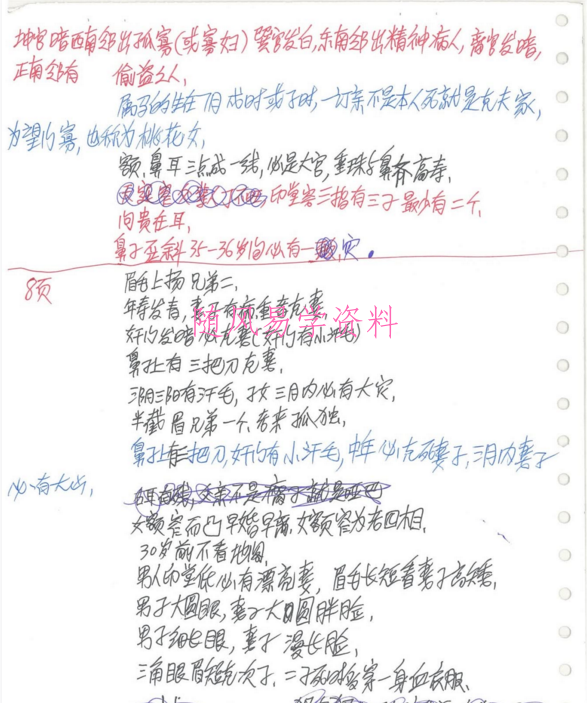 坤宫暗西南邻出孤寡(或寡妇)巽宫发白,东南邻出精神病人,离宫发暗,
正南邻有 偷盗之人,
属马的生在7月戌时或子时,一订亲不是本人死就是克夫家,
为望门寡,也称为桃花女,
额、鼻耳三点成一线,必是大官,垂珠与鼻齐高寿,
印堂容三指有三子最少有二个,
问贵在耳,
鼻子歪斜35-36岁间必有一灾。
8页
眉毛上扬兄弟二,
年寿发青,妻子有病重者克妻
奸门发暗必克妻(奸门有小汗毛)
鼻上有三把刀克妻,
三阴三阳有汗毛,子女三月内必有大灾,
半截眉兄弟一个,老来孤独,
鼻上有三把刀,奸门有小汗毛,中年必克死妻子,三月内妻子
必有大凶,
女额窄而凸早婚早离,女额窄为老四相,
30岁前不看地阁,
男人印堂低必有漂亮妻,眉毛长短看妻子高矮,
男子大圆眼,妻子大圆胖脸,
男子细长眼,妻子漫长脸,
三角眼眉短克次子,二子死时多穿一身血衣服、
随风易学资料